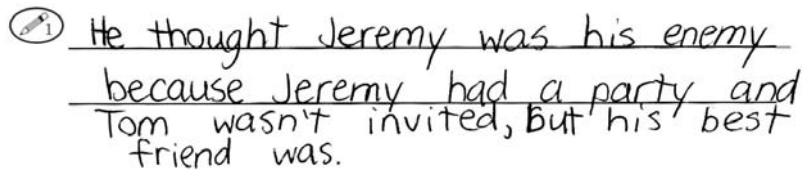 1 He thought Jeremy was his enemy
because Jeremy had a party and
Tom wasn't invited, but his best
friend was.